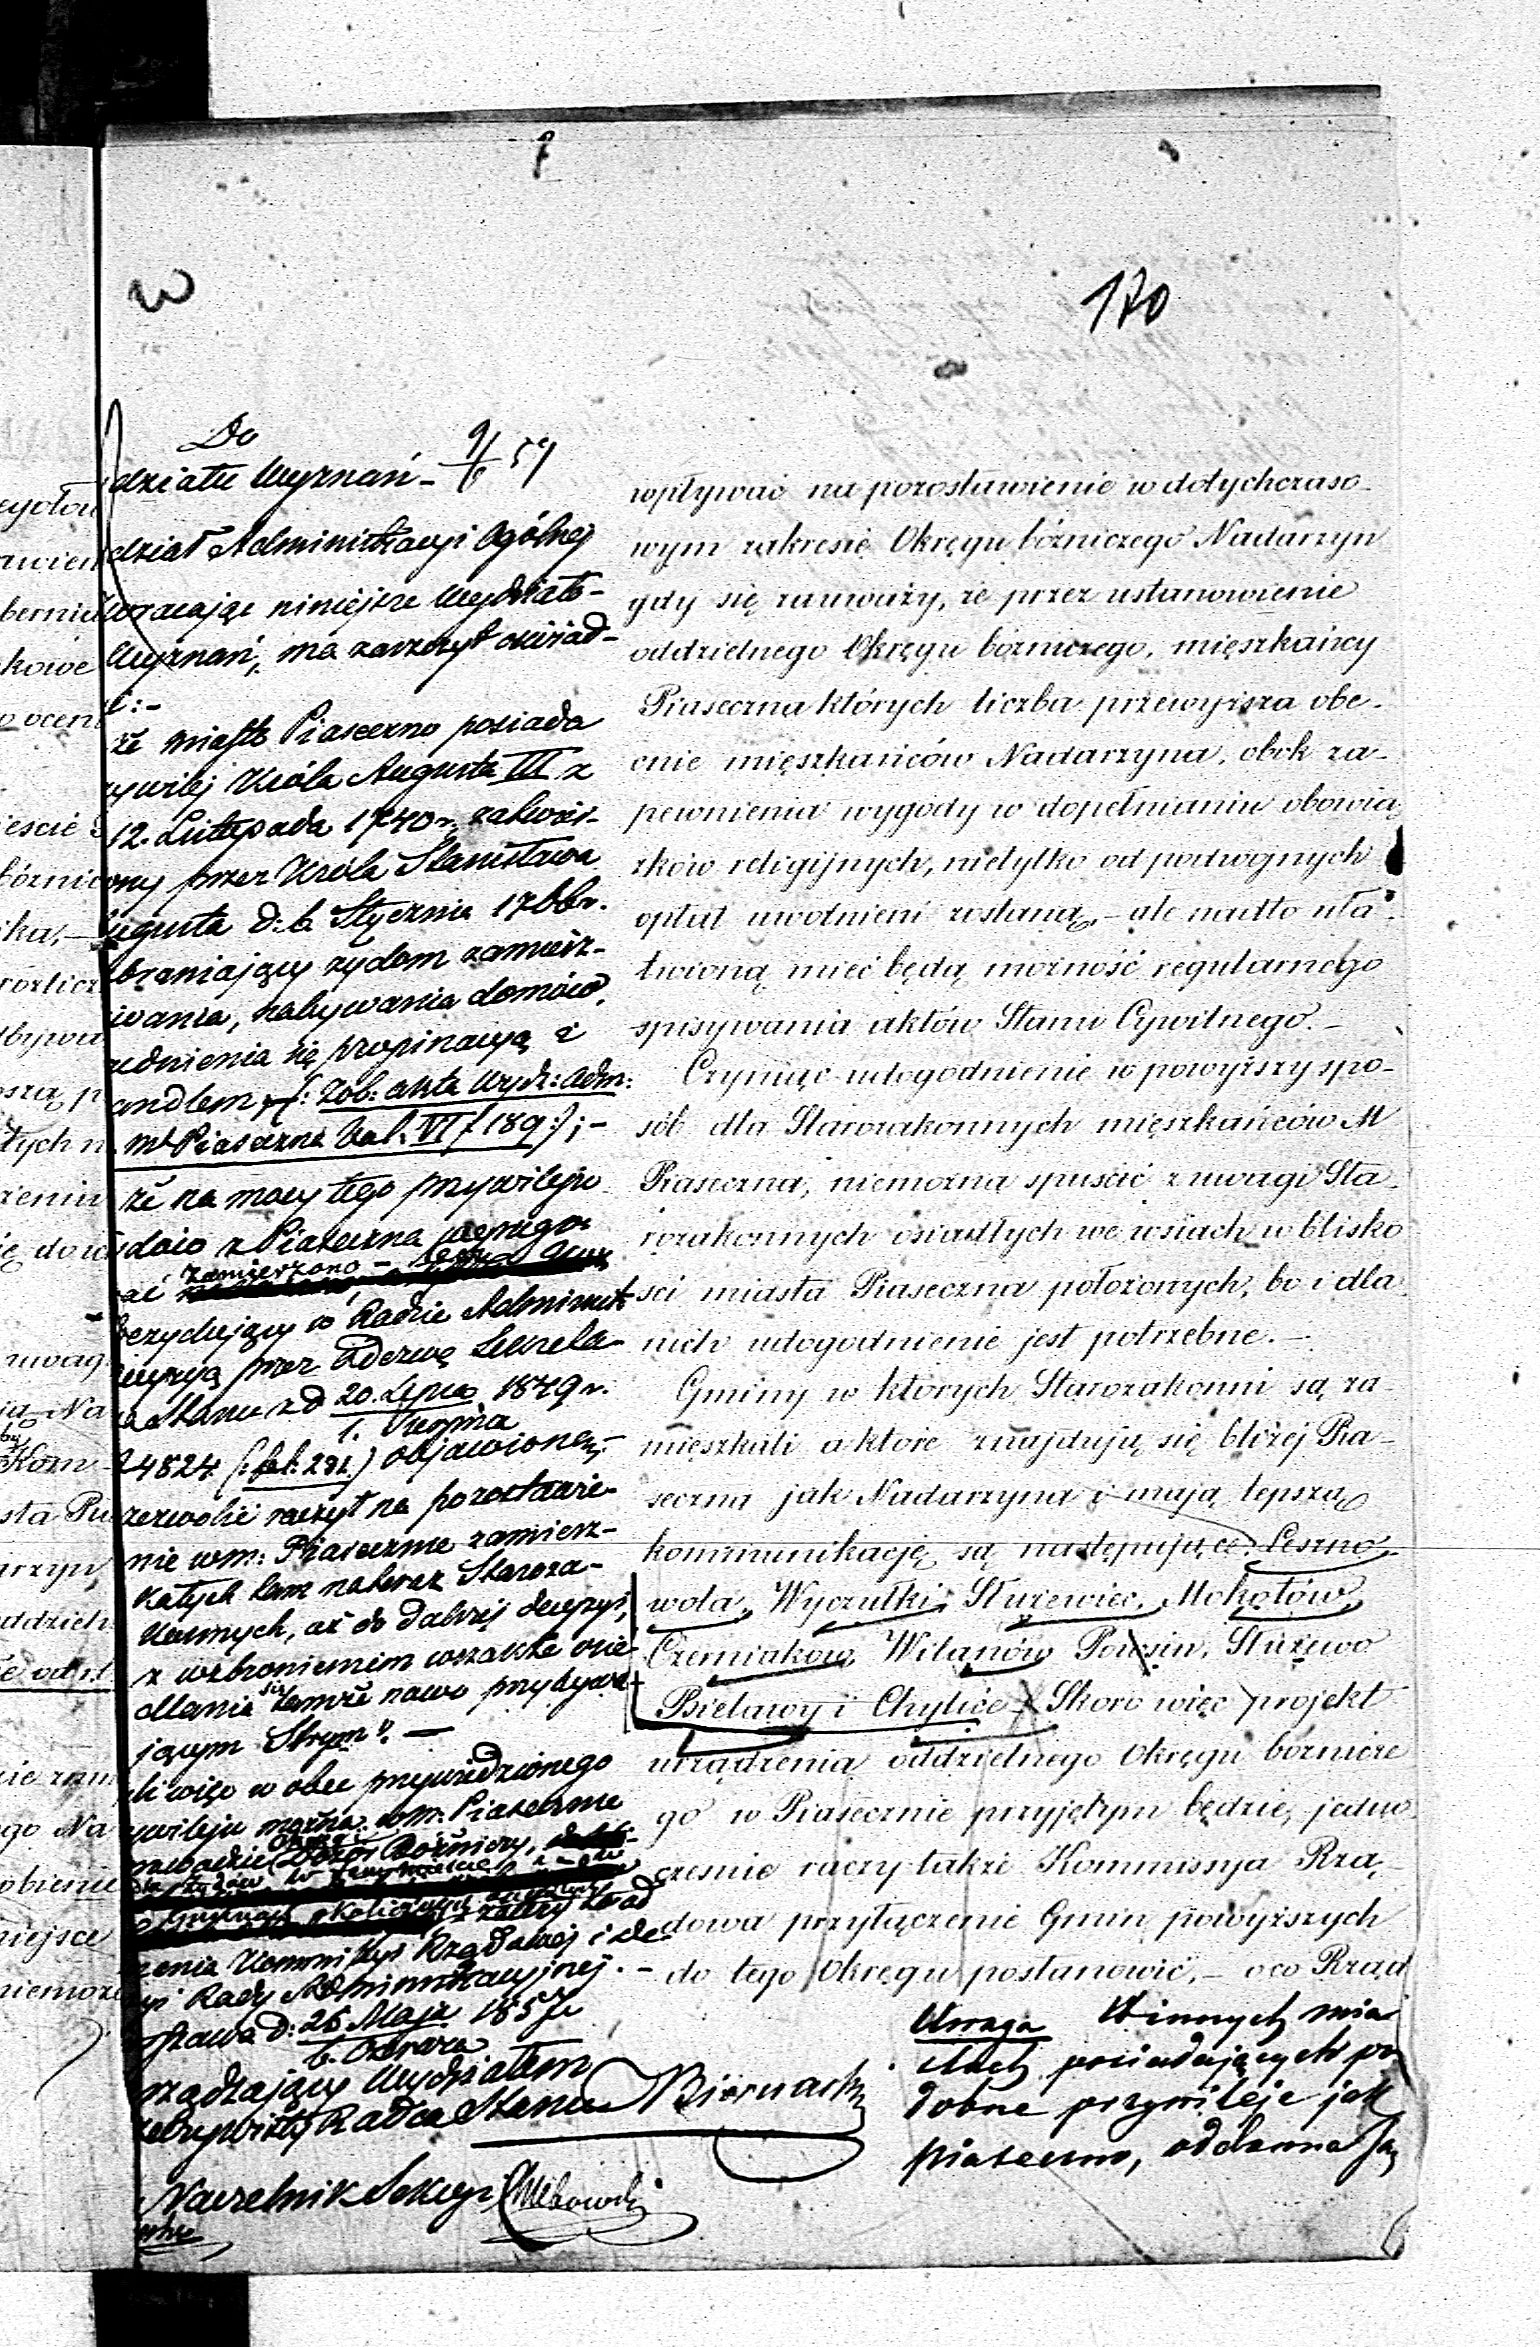 170
Do
działu Wyznań - 9/6 57
dział Administracyi Ogólnej
zwracając niniejsze Wydziało-
Wyznań, ma zaszczyt oświad-
ć:-
że miasto Piaseczno posiada
zywilej Króla Augusta III z
12. Listopada 1740 r., zatwier-
ony przez Króla Stanisława
ugusta d: 6. Stycznia 1766 r.
braniający żydom zamiesz-
iwania, nabywania domów,
udnienia się propinacyą i
andlem (: Zob: akta Wydz: Adm:
m. Piaseczna Vol. VI f 189:);-
że na mocy tego przywileju
dów z Piaseczna
ać zamierzono -
ezydujący w Radzie Administ
decyzyą przez Odezwę Sekreta-
a Stanu z d 20. Lipca 1849 r.
1. Sierpnia
24824 (: fol: 281.) objawioną,-
zezwolić raczył na pozostawie-
nie w m: Piasecznie zamiesz-
kałych tam na teraz Staroza-
konnych, aż do dalszéj decyzyi,
z wzbronieniem wszakże osie-
dlania się tamże nowo przybywa-
jącym Starym". —
li więc w obec przywiedzionego
zywileju można w m. Piasecznie
prowadzić Okrąg Bóżniczy,
dla żydów w temże mieście
zależy to od
zenia Kommissyi Rządowej i de-
yi Rady Administracyjnej. -
rszawa d: 26 Maja 1857 r.
6. Czerwca
rządzający Wydziałem
zeczywisty Radca Stanu Biernacki
Naczelnik Sekcyi
wpływać na pozostawienie w dotychczaso-
wym zakresie Okręgu bóżniczego Nadarzyn
gdy się zauważy, że przez ustanowienie
oddzielnego Okręgu bóżniczego, mięszkańcy
Piaseczna których liczba przewyższa obe-
cnie mięszkańców Nadarzyna, obok za-
pewnienia wygody w dopełnianiu obowią
zków religijnych, nietylko od podwójnych
opłat uwolnieni zostaną, - ale nadto uła-
twioną mieć będą możność regularnego
spisywania aktów Stanu Cywilnego. -
Czyniąc udogodnienie w powyższy spo-
sób dla Starozakonnych mięszkańców M
Piaseczna, niemożna spuścić z uwagi Sta-
rozakonnych osiadłych we wsiach w blisko
ści miasta Piaseczna położonych, bo i dla
nich udogodnienie jest potrzebne. -
Gminy w których Starozakonni są za-
mięszkali a które znajdują się bliżej Pia-
seczna jak Nadarzyna i mają lepszą
kommunikację są następujące: Leszno-
wola, Wyczułki, Służewiec, Mokotów,
Czerniaków, Wilanów Powsin, Służewo
Bielawy i Chylice - Skoro więc projekt
urządzenia oddzielnego Okręgu bóżnicze
go w Piasecznie przyjętym będzie, jedno-
cześnie raczy także Kommissya Rzą-
dowa przyłączenie Gmin powyższych
do tego Okręgu postanowić, - o co Rząd
Uwaga W innych mia
stach posiadających po
dobne przywileje jak
Piaseczno, oddawna są